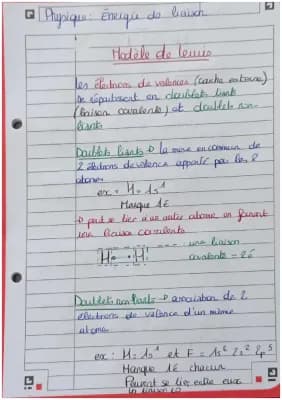 Physique : Énergie de liaison
Modèle de Lewis
Les électrons de valences (couche externe)
se répartissent en doublets liants
(liaison covalente) et doublets non-
liants
Doublets liants → la mise en commun de
2 électrons de valence apporté par les 2
atomes
ex : H = 1s¹
Manque 1é
→ peut se lier à un autre atome en formant
une liaison covalente
H• •H
une liaison
covalente = 2é
Doublets non liants → association de 2
électrons de valence d'un même
atome
ex : H = 1s¹ et F = 1s² 2s² 2p⁵
Manque 1é chacun
Peuvent se lier entre eux